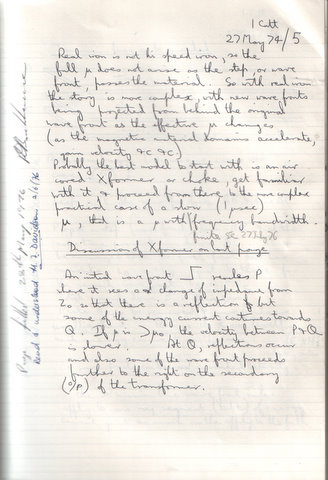 I Catt
27 May 74/5
Real iron is not hi speed iron, so the
full μ does not arise as the step, or wave
front, passes the material. So with real iron
the story is more complex, with new wave fronts
being projected from behind the original
wave front as the effective μ changes
(as the magnetic internal domains accelerate,
gain velocity &c &c)
Probably the best model to start with is an air
cored Xformer or choke, get familiar
with it & proceed from there to the more complex
practical case of a slow (1 μsec)
μ, that is a μ with frequency bandwidth.
Discussion of Xformer on last page
An initial wave front reaches P
where it sees a change of impedance from
Zo so that there is a reflection, but
some of the energy current continues towards
Q. If μ is > μo, the velocity between P & Q
is slower. At Q, reflections occur
and also some of the wave front proceeds
further to the right on the secondary
(o/p) of the transformer.
Page filed 28th May 1976
Read & understood M. F. Davidson 2/6/76